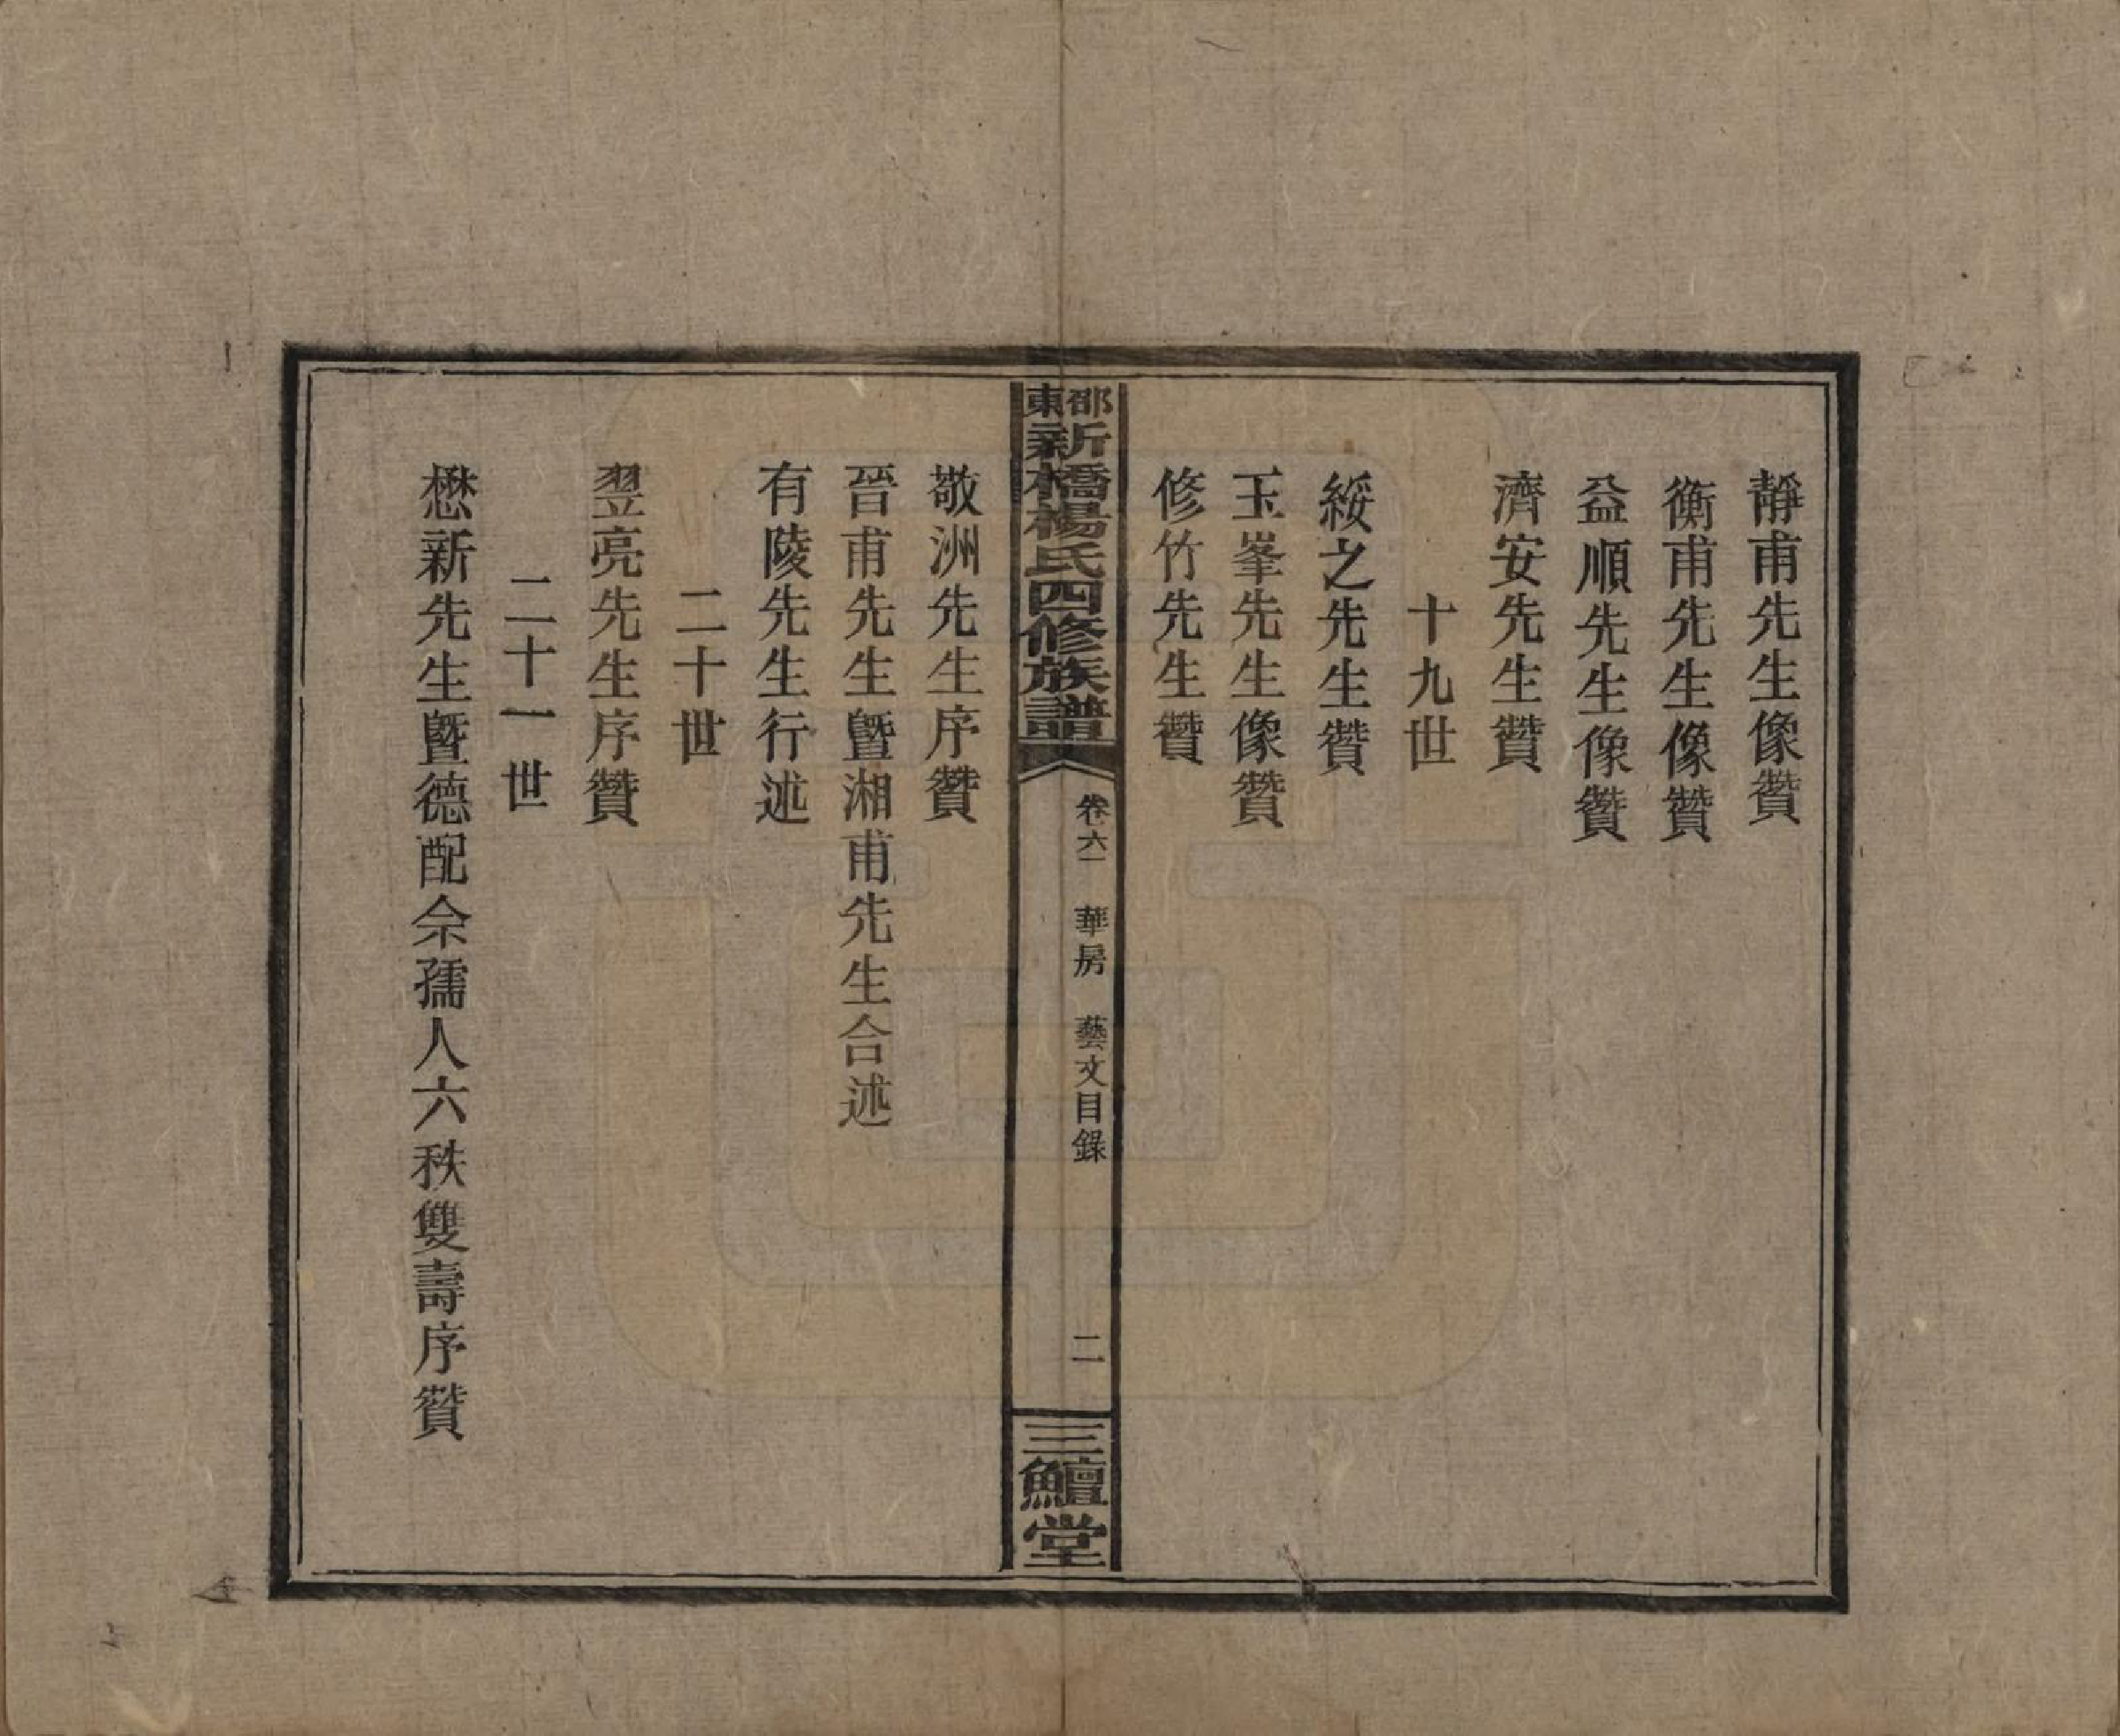 靜甫先生像贊
衡甫先生像贊
益順先生像贊
濟安先生贊
十九世
綏之先生贊
玉峯先生像贊
修竹先生贊
邵東新橋楊氏四修族譜
卷六一 華房 藝文目錄 二
三鱣堂
敬洲先生序贊
晉甫先生暨湘甫先生合述
有陵先生行述
二十世
翌亮先生序贊
二十一世
懋新先生暨德配佘孺人六秩雙壽序贊